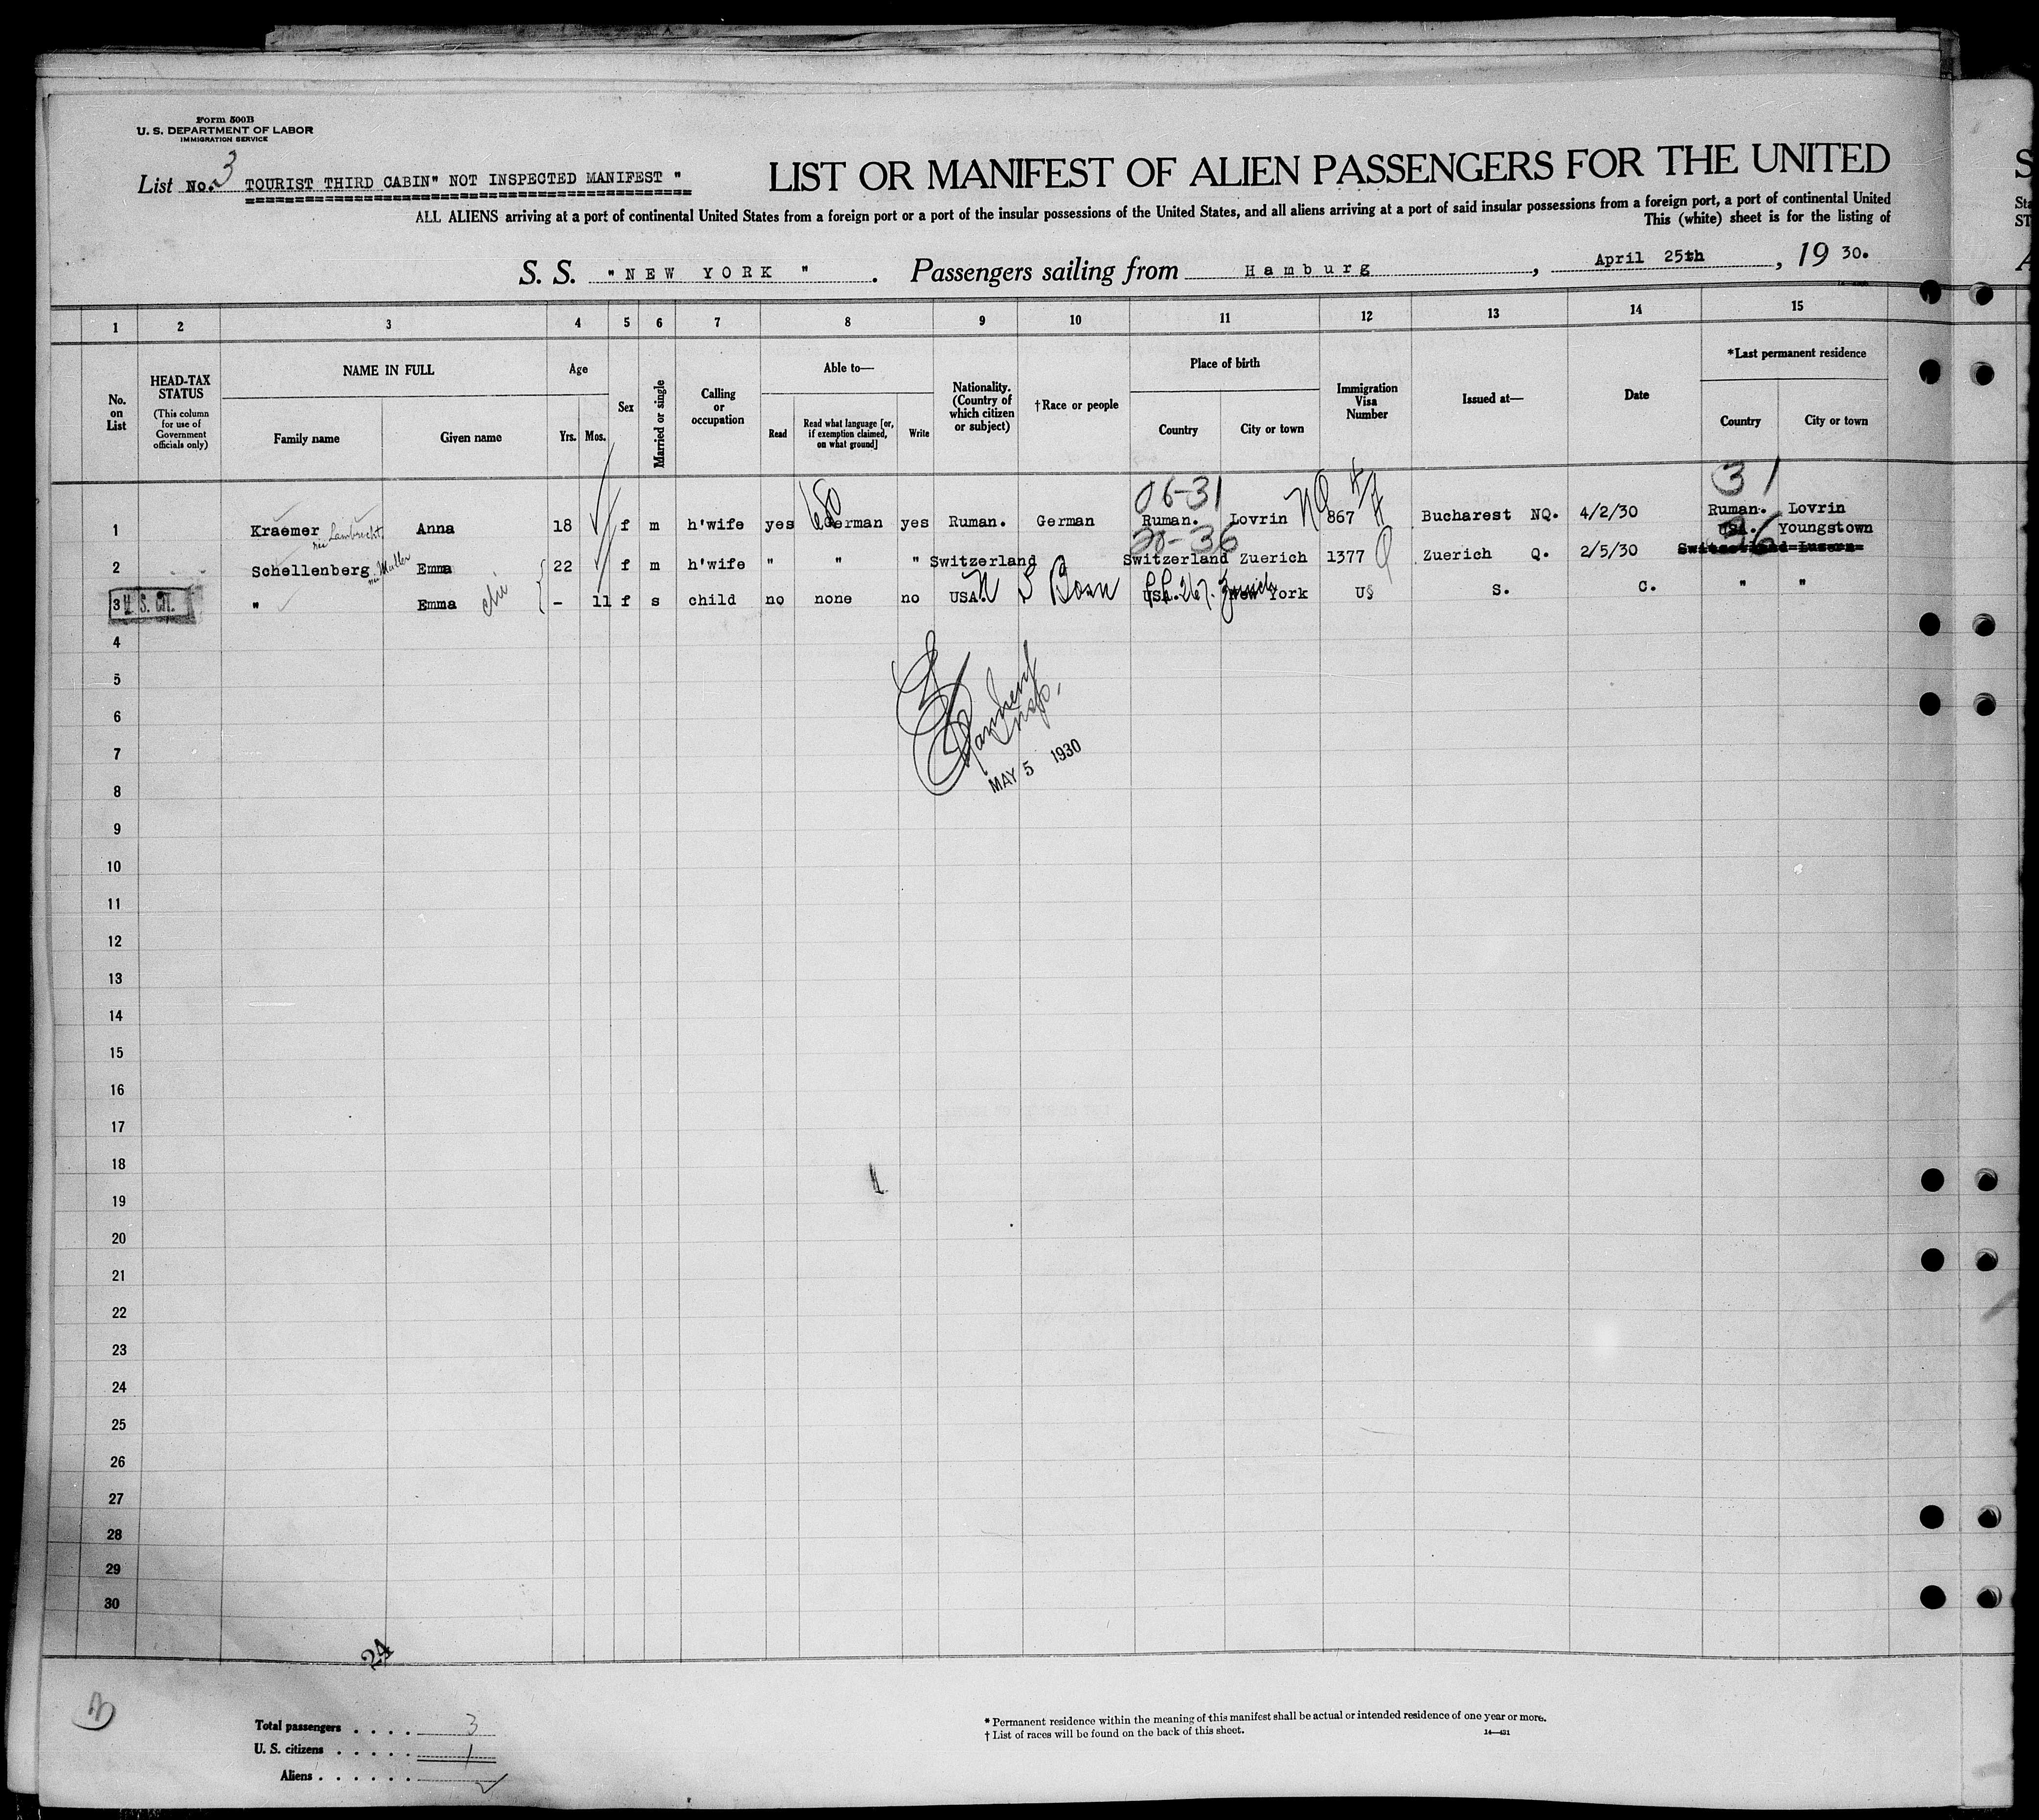 Form 500B
U. S. DEPARTMENT OF LABOR
IMMIGRATION SERVICE
List No. 3 TOURIST THIRD CABIN" NOT INSPECTED MANIFEST "
LIST OR MANIFEST OF ALIEN PASSENGERS FOR THE UNITED
ALL ALIENS arriving at a port of continental United States from a foreign port or a port of the insular possessions of the United States, and all aliens arriving at a port of said insular possessions from a foreign port, a port of continental United
This (white) sheet is for the listing of
S. S. " NEW YORK " . Passengers sailing from Hamburg , April 25th , 19 30.
1 2 3 4 5 6 7 8 9 10 11 12 13 14 15
No. on List
HEAD-TAX STATUS
(This column for use of Government officials only)
NAME IN FULL
Family name Given name
Age
Yrs. Mos.
Sex
Married or single
Calling or occupation
Able to—
Read
Read what language [or, if exemption claimed, on what ground]
Write
Nationality. (Country of which citizen or subject)
†Race or people
Place of birth
Country City or town
Immigration Visa Number
Issued at—
Date
*Last permanent residence
Country City or town
06-31 NQ 31
1 Kraemer née Lambrecht Anna 18 f m h'wife yes German yes Ruman. German Ruman. Lovrin 867 Bucharest NQ. 4/2/30 Ruman. Lovrin
20-36 36
USA. Youngstown
2 Schellenberg née Muller Emma 22 f m h'wife " " " Switzerland Switzerland Zuerich 1377 Q Zuerich Q. 2/5/30
3 U. S. CIT. " Emma - 11 f s child no none no USA. N S Born USA. New York US S. C. " "
4
5
6
7
8
Insp.
MAY 5 1930
9
10
11
12
13
14
15
16
17
18
19
20
21
22
23
24
25
26
27
28
29
30
24
Total passengers . . . . 3
U. S. citizens . . . . . 1
Aliens . . . . . . 2
* Permanent residence within the meaning of this manifest shall be actual or intended residence of one year or more.
† List of races will be found on the back of this sheet.
14—431